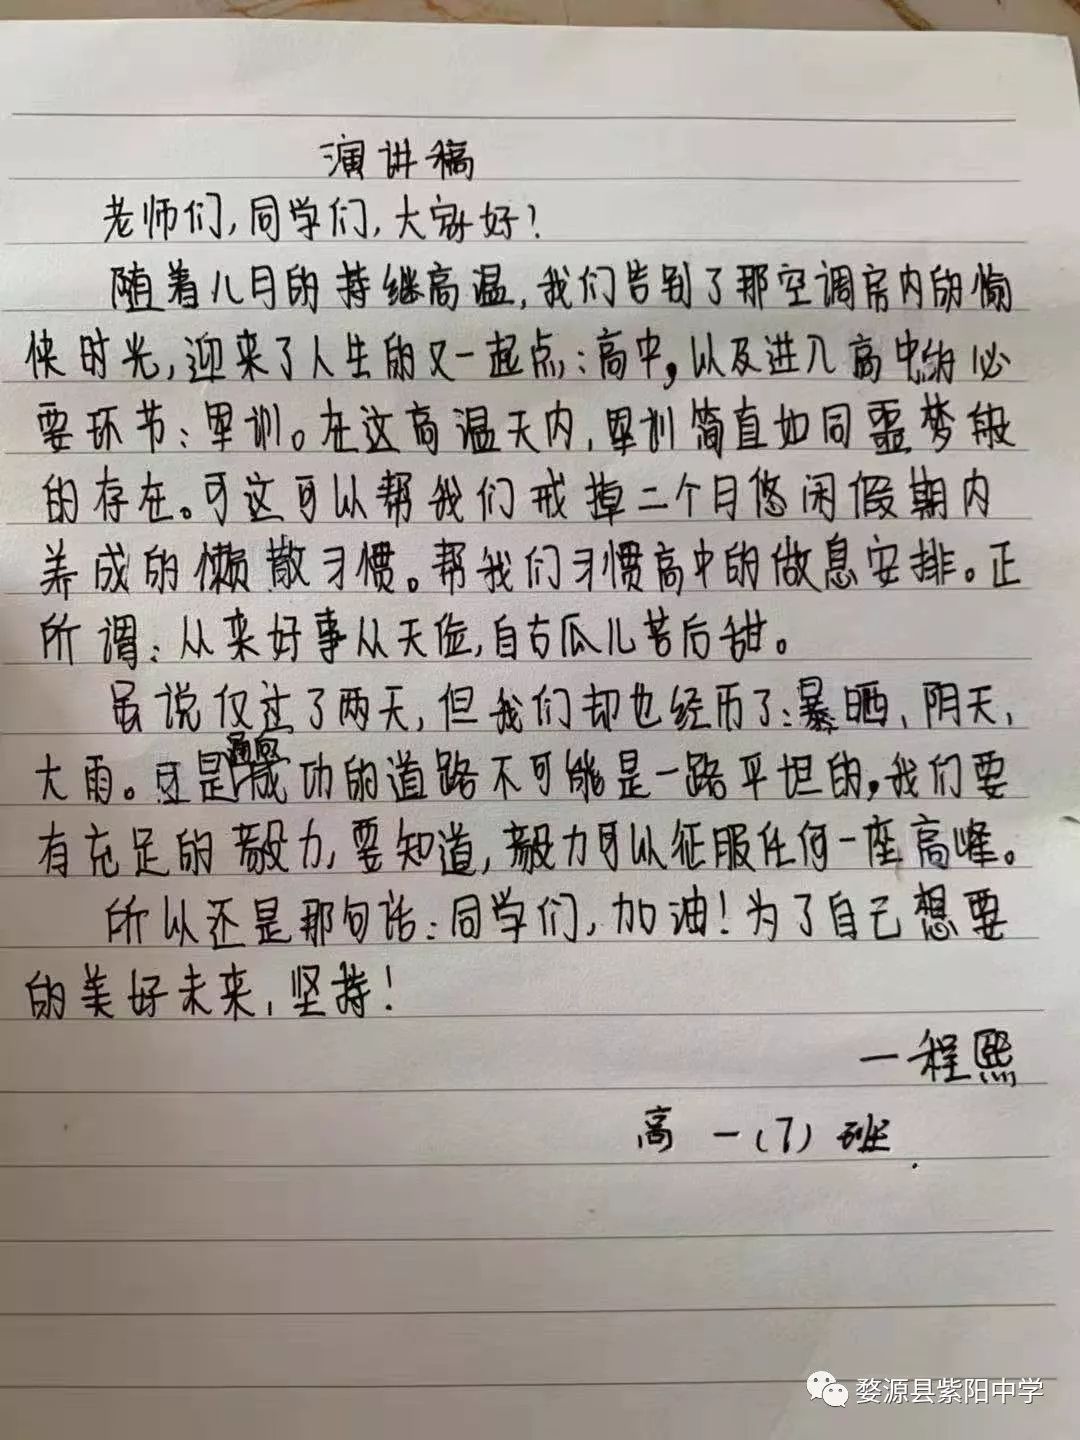 演讲稿
老师们,同学们,大家好!
随着八月的持继高温,我们告别了那空调房内的愉
快时光,迎来了人生的又一起点:高中,以及进入高中的必
要环节:军训。在这高温天内,军训简直如同噩梦般
的存在。可这可以帮我们戒掉二个月悠闲假期内
养成的懒散习惯。帮我们习惯高中的做息安排。正
所谓:从来好事从天俭,自古瓜儿苦后甜。
虽说仅过了两天,但我们却也经历了:暴晒、阴天,
大雨。可是通常成功的道路不可能是一路平坦的,我们要
有充足的毅力,要知道,毅力可以征服任何一座高峰。
所以还是那句话:同学们,加油!为了自己想要
的美好未来,坚持!
一程熙
高一(7)班
婺源县紫阳中学